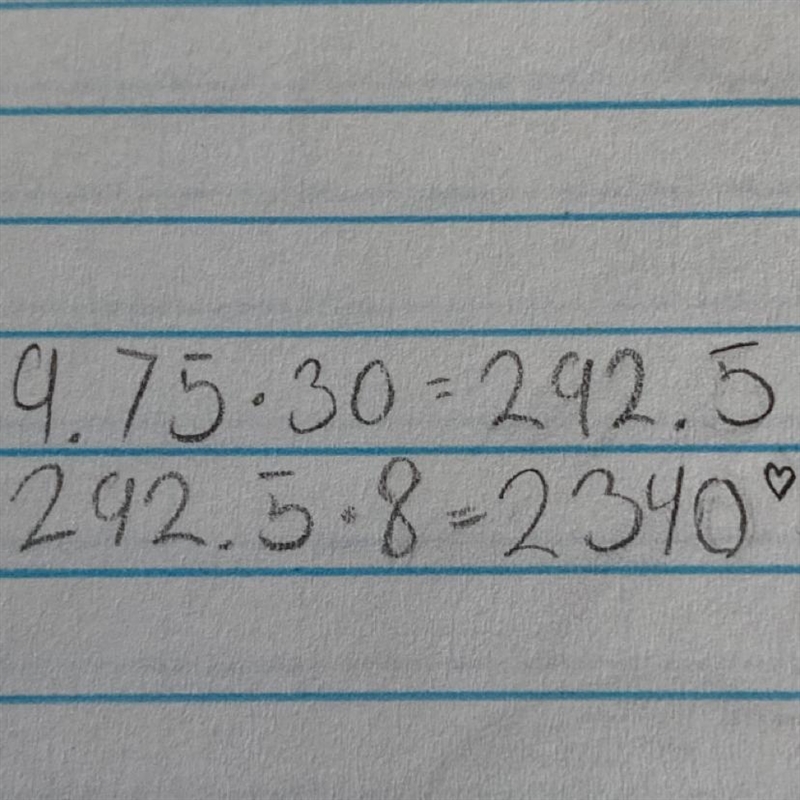 9.75·30=292.5
292.5·8=2340♡